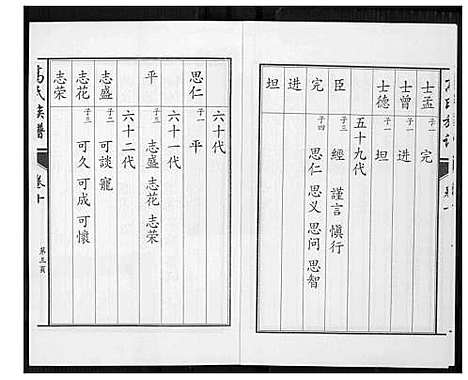 士孟 子一 完
士曾 子一 进
士德 子一 坦
五十九代
臣 子三 經 謹言 慎行
完 子四 思仁 思义 思问 思智
进
坦
六十代
思仁 子一 平
六十一代
平 子三 志盛 志花 志荣
六十二代
志盛 子二 可談 可寵
志花 子三 可久 可成 可懷
志荣
氏族譜
卷十
第五頁